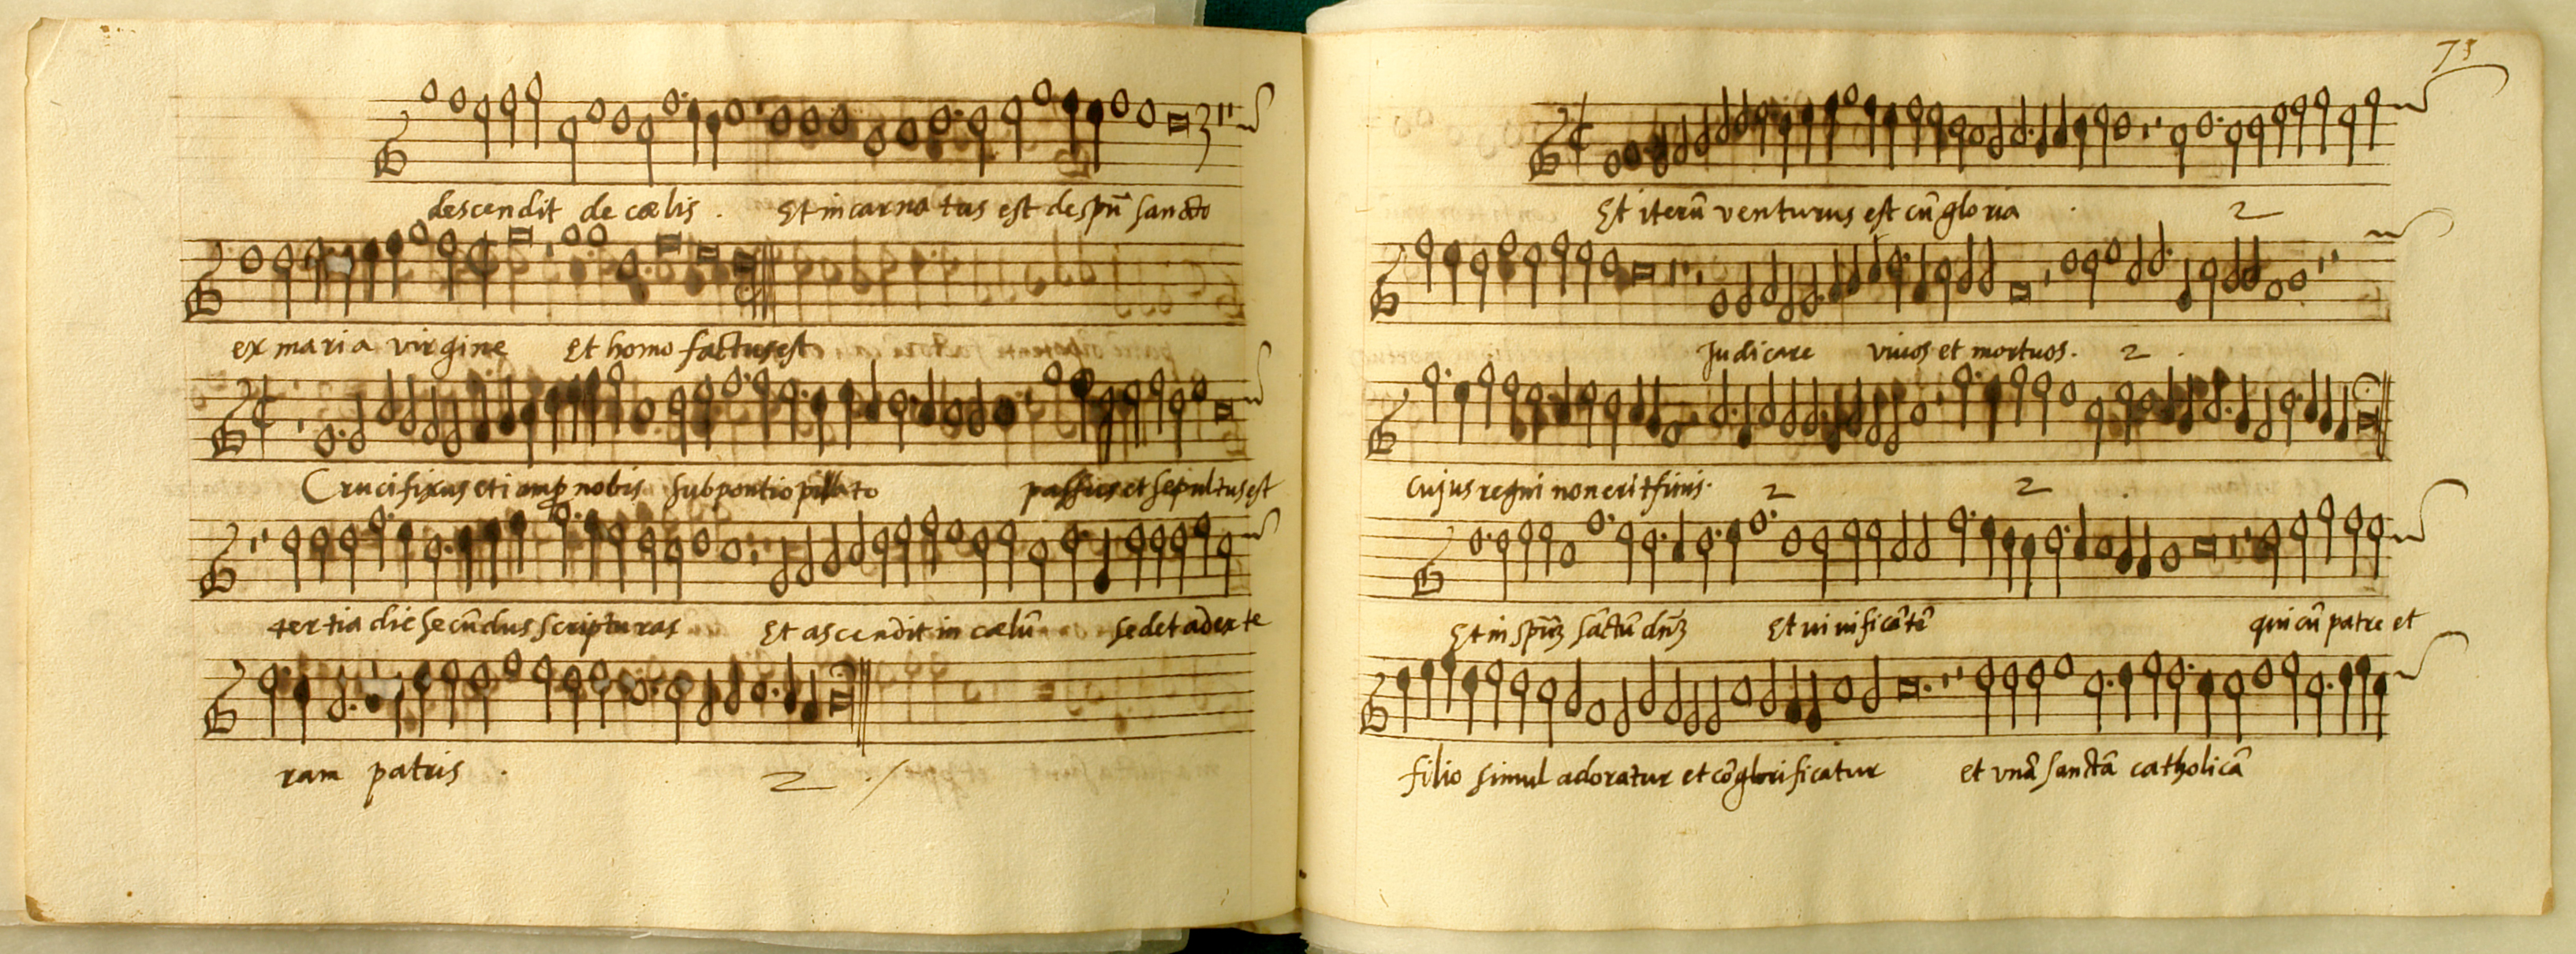 descendit de cœlis . Et incarna tus est de spū sancto
ex maria virgine Et homo factus est
Crucifixus eti amp nobis sub pontio pilato passus et sepultus est
tertia die secūndus scripturas Et ascendit in cœlū sedet ad dexte
ram patris . 2 ./
73
Et iterū venturus est cū gloria . 2
Judicare viuos et mortuos . 2 .
Cujus regni non erit finis . 2 2 .
Et in spūm sāctū dnm Et uiuificātē qui cū patre et
filio simul adoratur et cōglorificatur et vnā sanctā catholicā